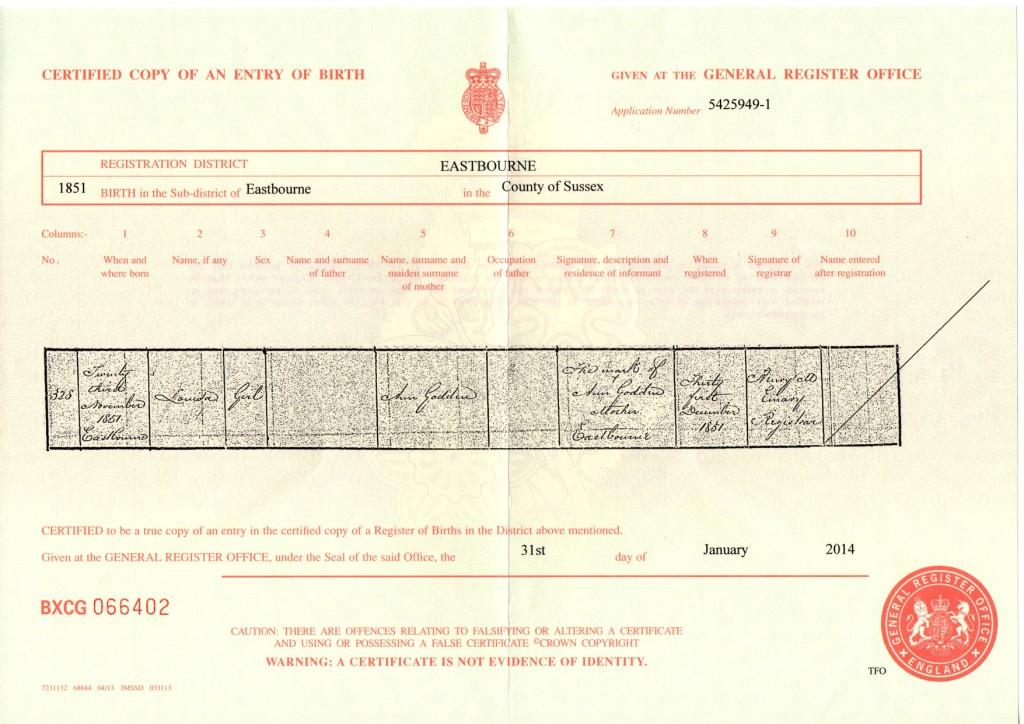 CERTIFIED COPY OF AN ENTRY OF BIRTH
GIVEN AT THE GENERAL REGISTER OFFICE
Application Number 5425949-1
REGISTRATION DISTRICT EASTBOURNE
1851 BIRTH in the Sub-district of Eastbourne in the County of Sussex
Columns:- 1 2 3 4 5 6 7 8 9 10
No. When and where born
Name, if any
Sex
Name and surname of father
Name, surname and maiden surname of mother
Occupation of father
Signature, description and residence of informant
When registered
Signature of registrar
Name entered after registration
325
Twenty
third
November
1851
Eastbourne
Louisa
Girl
Ann Godden
The mark of
Ann Godden
Mother
Eastbourne
Thirty
first
December
1851
Emary
Registrar
CERTIFIED to be a true copy of an entry in the certified copy of a Register of Births in the District above mentioned.
Given at the GENERAL REGISTER OFFICE, under the Seal of the said Office, the 31st day of January 2014
BXCG 066402
CAUTION: THERE ARE OFFENCES RELATING TO FALSIFYING OR ALTERING A CERTIFICATE
AND USING OR POSSESSING A FALSE CERTIFICATE ©CROWN COPYRIGHT
WARNING: A CERTIFICATE IS NOT EVIDENCE OF IDENTITY.
GENERAL REGISTER OFFICE
ENGLAND
TFO
7231132 68844 04/13 3MSSD 033113